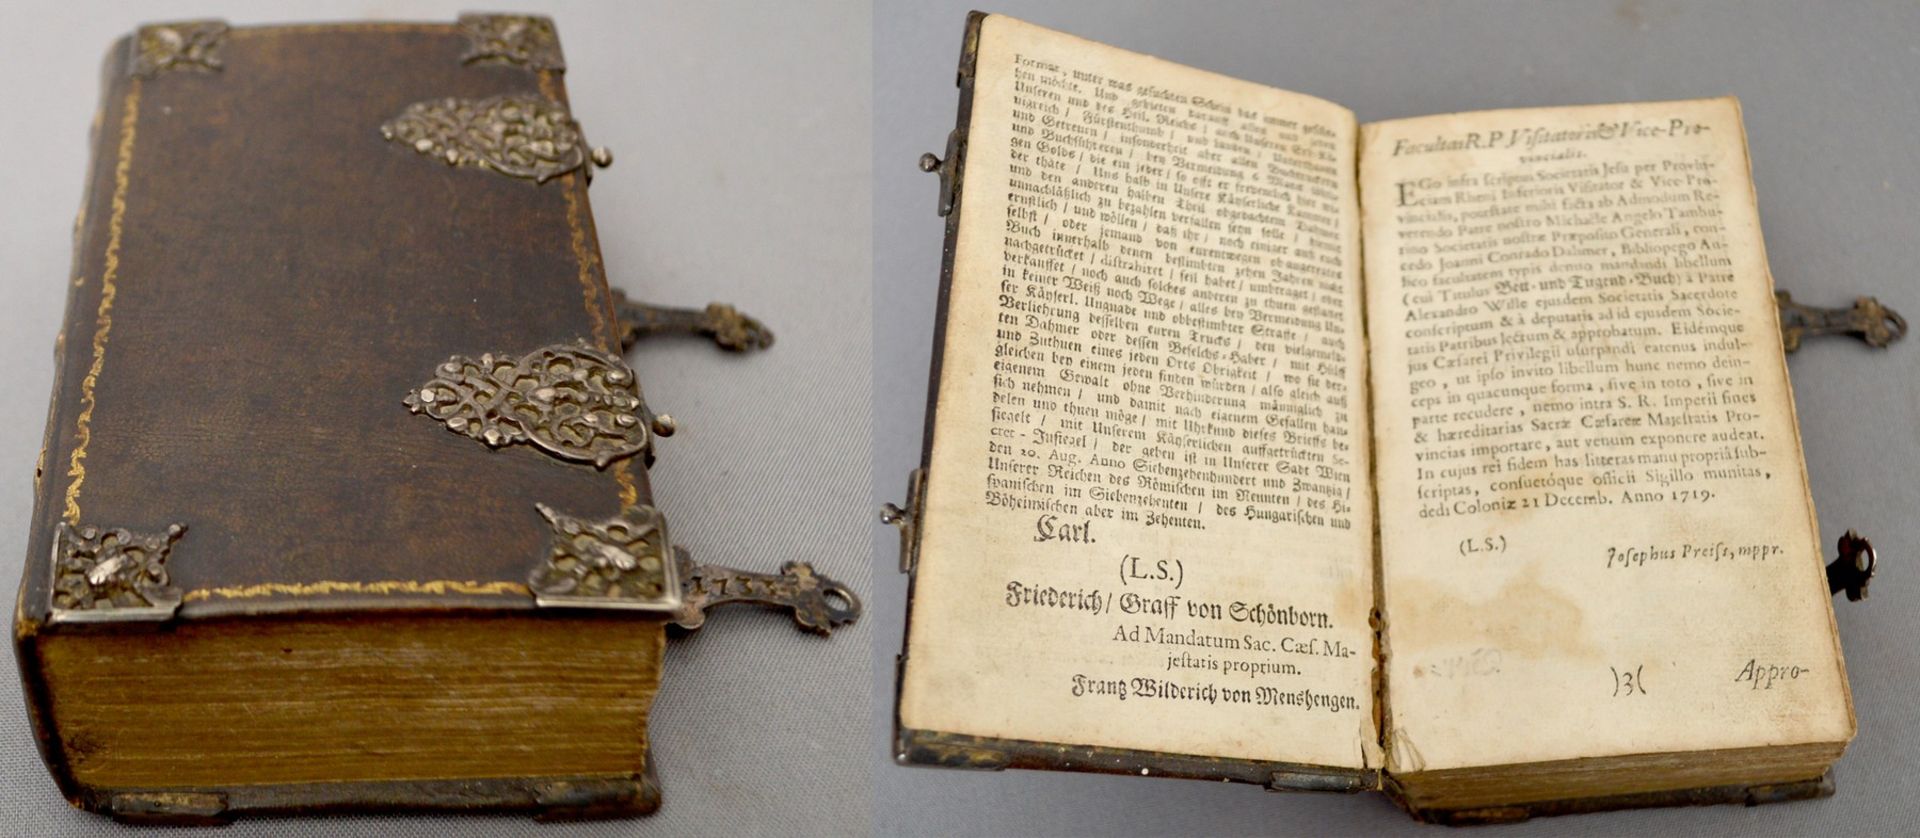 1733
Formar, unter was gesuchten Schein das immer gesche-
hen möchte. Und gebieten darauff allen und jeden
Unseren und des Heil. Reichs / auch Unseren Erb-Kö-
nigreich / Fürstenthumb / und Landen / Unterthanen
und Getreuen / insonderheit aber allen Buchtruckern
und Buchführeren / bey Vermeidung 6 Marck löthi-
gen Golds / die ein jeder / so offt er freventlich hier wie-
der thäte / Uns halb in Unsere Käyserliche Kammer /
und den anderen halben Theil obgedachtem Dahmer
unnachläßlich zu bezahlen verfallen seyn solle / hiemit
ernstlich / und wöllen / daß ihr / noch einiger auß euch
selbst / oder jemand von eurentwegen obangeregtes
Buch innerhalb denen bestimbten zehen Jahren nicht
nachgetrücket / distrahiret / feil habet / umbtraget / oder
verkauffet / noch auch solches anderen zu thuen gestattet
in keiner Weiß noch Wege / alles bey Vermeidung Un-
ser Käyserl. Ungnade und obbestimbter Straffe / auch
Verliehrung desselben euren Trucks / den vielgemelt-
ten Dahmer oder dessen Befelchs-Haber / mit Hülff
und Zuthuen eines jeden Orts Obrigkeit / wo sie der-
gleichen bey einem jeden finden würden / also gleich auß
eigenem Gewalt ohne Verhinderung männiglich zu
sich nehmen / und damit nach eigenem Gefallen han-
delen und thuen möge / mit Uhrkund dieses Brieffs be-
siegelt / mit Unserem Käyserlichen auffgetrückten Se-
cret-Insiegel / der geben ist in Unserer Stadt Wien
den 20. Aug. Anno Siebenzehenhundert und Zwantzig /
Unserer Reichen des Römischen im Neunten / des Hi-
spanischen im Siebenzehenten / des Hungarischen und
Böheimischen aber im Zehenten.
Carl.
(L.S.)
Friederich / Graff von Schönborn.
Ad Mandatum Sac. Cæs. Ma-
jestatis proprium.
Frantz Wilderich von Menshengen.
Facultas R. P. Visitatoris & Vice-Pro-
vincialis.
EGo infra scriptus Societatis Jesu per Provin-
ciam Rheni Inferioris Visitator & Vice-Pro-
vincialis, potestate mihi facta ab Admodum Re-
verendo Patre nostro Michaële Angelo Tambu-
rino Societatis nostræ Præposito Generali, con-
cedo Joanni Conrado Dahmer, Bibliopego Au-
lico facultatem typis denuo mandandi libellum
(cui Titulus Bett- und Tugend-Buch) à Patre
Alexandro Wille ejusdem Societatis Sacerdote
conscriptum & à deputatis ad id ejusdem Socie-
tatis Patribus lectum & approbatum. Eidémque
jus Cæsarei Privilegii usurpandi eatenus indul-
geo, ut ipso invito libellum hunc nemo dein-
ceps in quacunque forma, sive in toto, sive in
parte recudere, nemo intra S. R. Imperii fines
& hæreditarias Sacræ Cæsareæ Majestatis Pro-
vincias importare, aut venum exponere audeat.
In cujus rei fidem has litteras manu propriâ sub-
scriptas, consuetóque officii Sigillo munitas,
dedi Coloniæ 21 Decemb. Anno 1719.
(L.S.)
Josephus Preiss, mppr.
)3(
Appro-